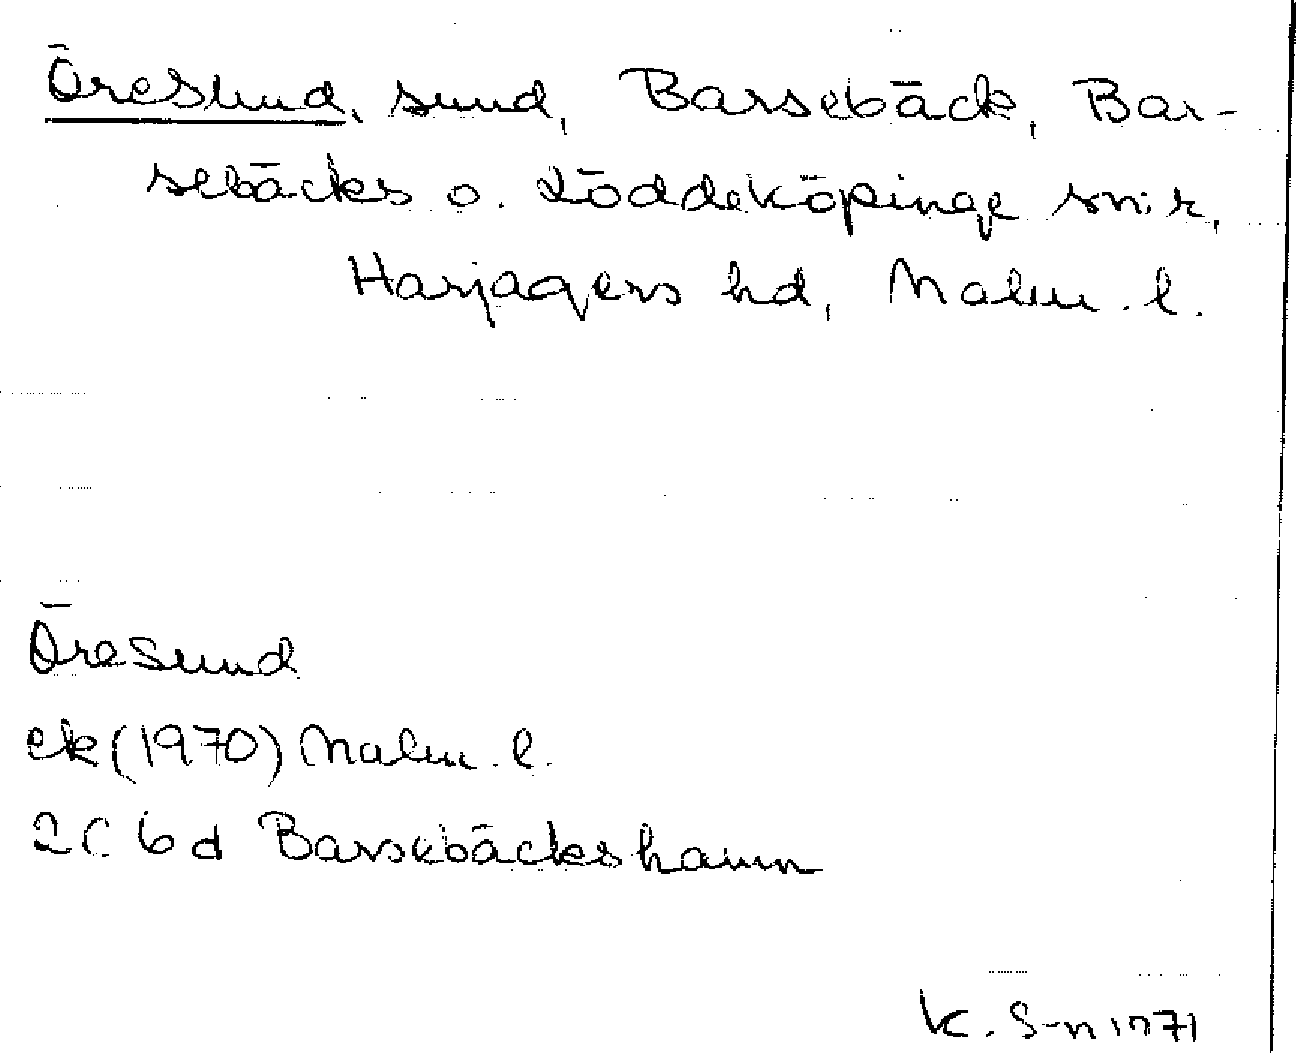 Öresund, sund, Barsebäck, Bar-
sebäcks o. Löddeköpinge snr,
Harjagers hd, Malm. l.
Öresund
ek (1970) Malm. l.
2C 6d Barsebäckshamn
K. S-n 1971